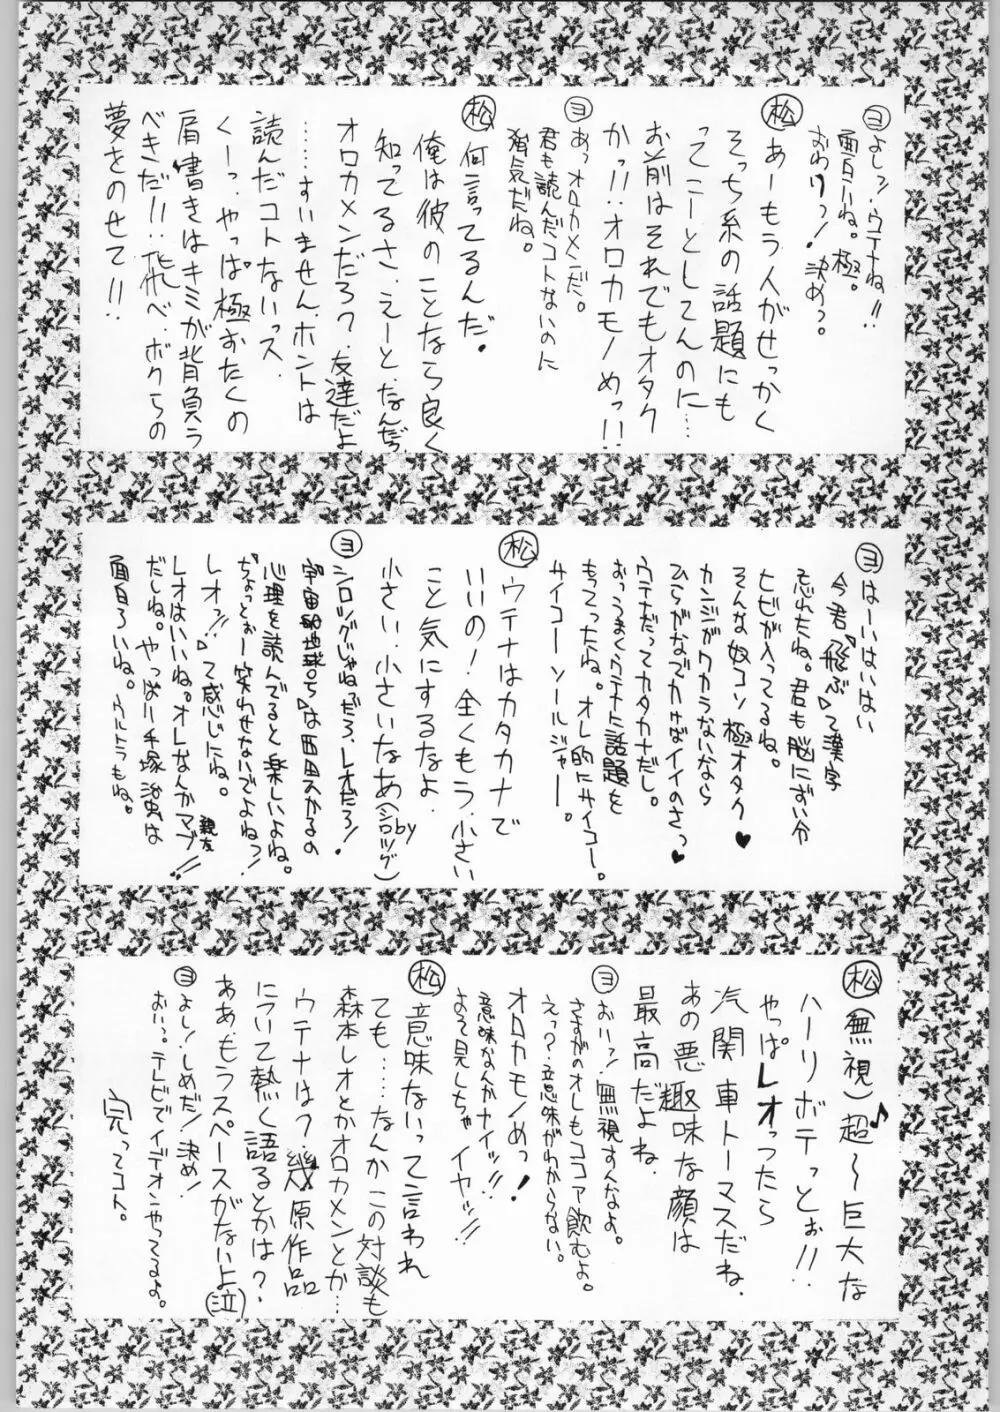 ヨ よしっ!ウテナね!!
面白いね。極。
おわりっ!決めっ。
松 あーもう人がせっかく
そっち系の話題にも
ってこーとしてんのに…
お前はそれでもオタク
かっ!!オロカモノめっ!!
ヨ あっオロカメンだ。
君も読んだコトないのに
病気だね。
松 何言ってるんだ。
俺は彼のことなら良く
知ってるさ、えーと、なんだっ
オロカメンだろ?友達だよ
……すいません、ホントは
読んだコトないっス
くーっ、やっぱ極おたくの
肩書きはキミが背負う
べきだ!!飛べ、ボクらの
夢をのせて!!
ヨ はーいはいはい
今君『飛ぶ』って漢字
忘れたね。君も脳にずい分
ヒビが入ってるね。
そんな奴コソ極オタク♥
カンジがワカラないなら
ひらがなでカけばイイのさっ♥
ウテナだってカタカナだし。
おっうまくウテナに話題を
もってったね。オレ的にサイコー。
サイコーソールジャー。
松 ウテナはカタカナで
いいの!全くもう、小さい
こと気にするなよ、
小さい、小さいなあ(by シロッグ)
ヨ シロッグじゃねーだろ、レオだろ!
『宇宙船地球号』は西田ひかるの
心理を読んでると楽しいよね。
『ちょっとぉー笑わせないでよねっ!
レオっ!!』って感じにね。
レオはいいね。オレなんかマブ!!親友
だしね。やっぱり手塚治虫は
面白ろいね。ウルトラもね。
松 (無視)超〜巨大な♪
ハーリボテっとぉ!!
やっぱレオったら
汽関車トーマスだね、
あの悪趣味な顔は
最高だよね、
ヨ おいっ、無視すんなよ。
さすがのオレもココア飲むよ。
えっ?意味がわからない。
オロカモノめっ!
意味なんかナイッ!!
よそ見しちゃイヤッ!!
松 意味ないって言われ
ても……なんかこの対談も
森本レオとかオロカメンとか…
ウテナは?幾原作品
について熱く語るとかは?
ああもうスペースがないよ(泣)
ヨ よし!しめだ!決め!
おいっ。テレビでイデオンやってるよ。
完ってコト。